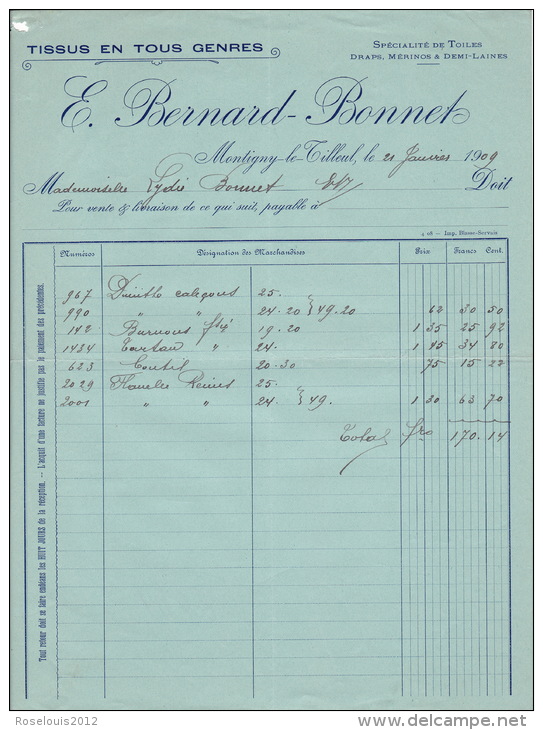 TISSUS EN TOUS GENRES
SPÉCIALITÉ DE TOILES
DRAPS, MÉRINOS & DEMI-LAINES
E. Bernard-Bonnet
Montigny-le-Tilleul, le 21 Janvier 1909
Mademoiselle Lydie Bonnet Doit
Pour vente & livraison de ce qui suit, payable à
4 08 — Imp. Blasse-Servais
Numéros Désignation des Marchandises Prix Francs Cent.
967 caleçons 25.
990 " " 24.20 } 49.20 62 30 50
142 Burnous 19.20 1 35 25 92
1434 Tartan " 24. 1 45 34 80
623 Coutil 20.30 75 15 22
2029 Flanelle Reims 25.
2001 " " 24. } 49. 1 30 63 70
Total frs 170.14
Tout retour doit se faire endéans les HUIT JOURS de la réception. — L'acquit d'une facture ne justifie pas le paiement des précédentes.
Roselouis2012
www.delcampe.net